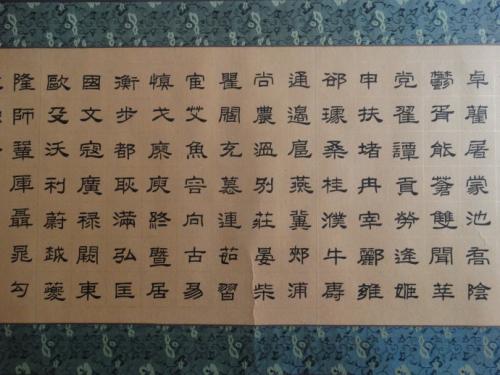 卓藺屠蒙池喬陰
鬱胥能蒼雙聞莘
党翟譚貢勞逄姬
申扶堵冉宰酈雍
郤璩桑桂濮牛壽
通邊扈燕冀郟浦
尚農溫別莊晏柴
瞿閻充慕連茹習
宦艾魚容向古易
慎戈廖庾終暨居
衡步都耿滿弘匡
國文寇廣祿闕東
歐殳沃利蔚越夔
隆師鞏厙聶晁勾